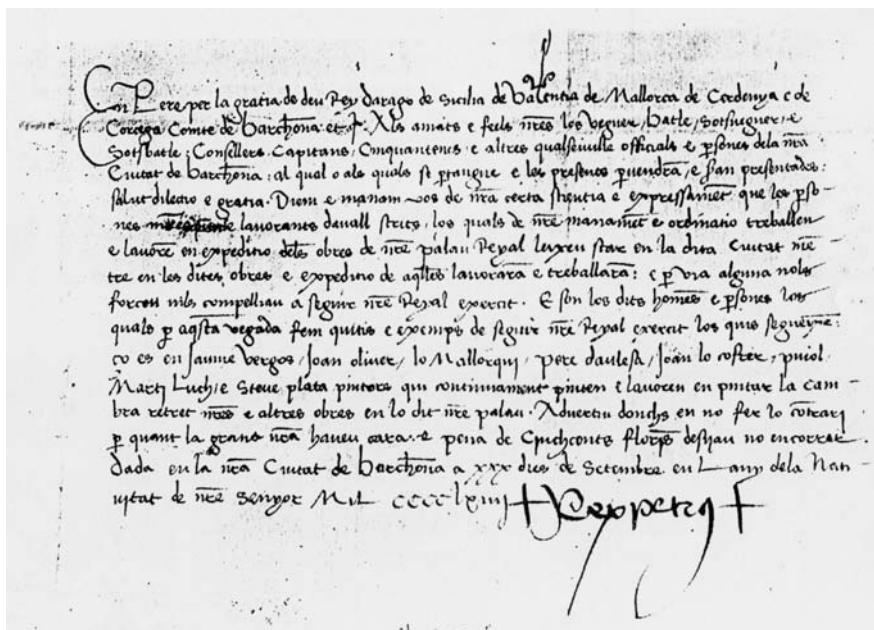 En Pere per la gratia de deu Rey darago de Sicilia de Valentia de Mallorca de Cerdenya e de
Corcega Comte de barchõna. et c̃. Als amats e feels nr̃es los veguer, batle, sotsueguer, e
Sotsbatle, Consellers, Capitans, Cinquantenes e altres qualseuulle officials e p̃sones dela nr̃a
Ciutat de barchõna: al qual o als quals se p̃tangue e les presents p̃uendrã, e seran presentades:
salut dilectio e gratia. Diem e manam vos de nr̃a certa scientia e expressamẽt que les p̃so
nes lauorants dauall scrits, los quals de nr̃e manamẽt e ordinatio treballen
e lauorẽ en expeditio deles obres de nr̃e palau Reyal leixeu star en la dita Ciutat mẽ
tre en les dites obres e expeditio de aq̃lles lauorarã e treballarã: e p̃ via alguna nols
forceu nils compelliau a seguir nr̃e Reyal exercit. E son los dits homẽs e p̃sones los
quals p̃ aq̃sta vegada fem quitis e exemps de seguir nr̃e Reyal exercit los quis segueixẽ:
ço es en Jaume Vergos, Joan oliuer, lo Mallorqui, pere daulesa, Joan lo cofrer, puiol,
Marti Luch, e Steue plata pintors qui continuament pinten e lauoren en pintar la cam
bra retret nr̃es e altres obres en lo dit nr̃e palau. Aduertiu donchs en no fer lo cõtrari
p̃ quant la gratia nr̃a haueu cara e pena de Cinchcents florĩs desijau no encorrer.
Dada en la nr̃a Ciutat de barchõna a xxx dies de Setembre en Lany dela Nati
uitat de nr̃e Senyor Mil cccclxiiij Rex petrus